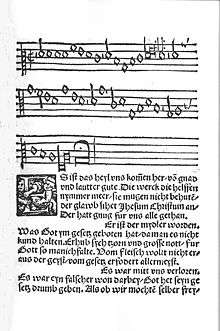 ES ist das heyl vns komen her/ võ gnad
vnd lautter gute. Die werck die helffen
nymmer mer/ sie mugen nicht behutē
der glaub sihet Jhesum Christum an/
Der hat gnug für vns alle gethan.
Er ist der mydler worden.
Was Got ym gesetz geboten hat/ da man es nicht
kund halten. Erhub sych zorn vnd grosse nott/ für
Got so manichfalt. Vom fleisch wolt nicht er-
aus der geyst/ vom gesetz erfodert allermeyst.
Es war mit vns verloren.
Es war eyn falscher won darbey/ Got het seyn ge
setz drumb geben. Als ob wir mochtē selber frey/